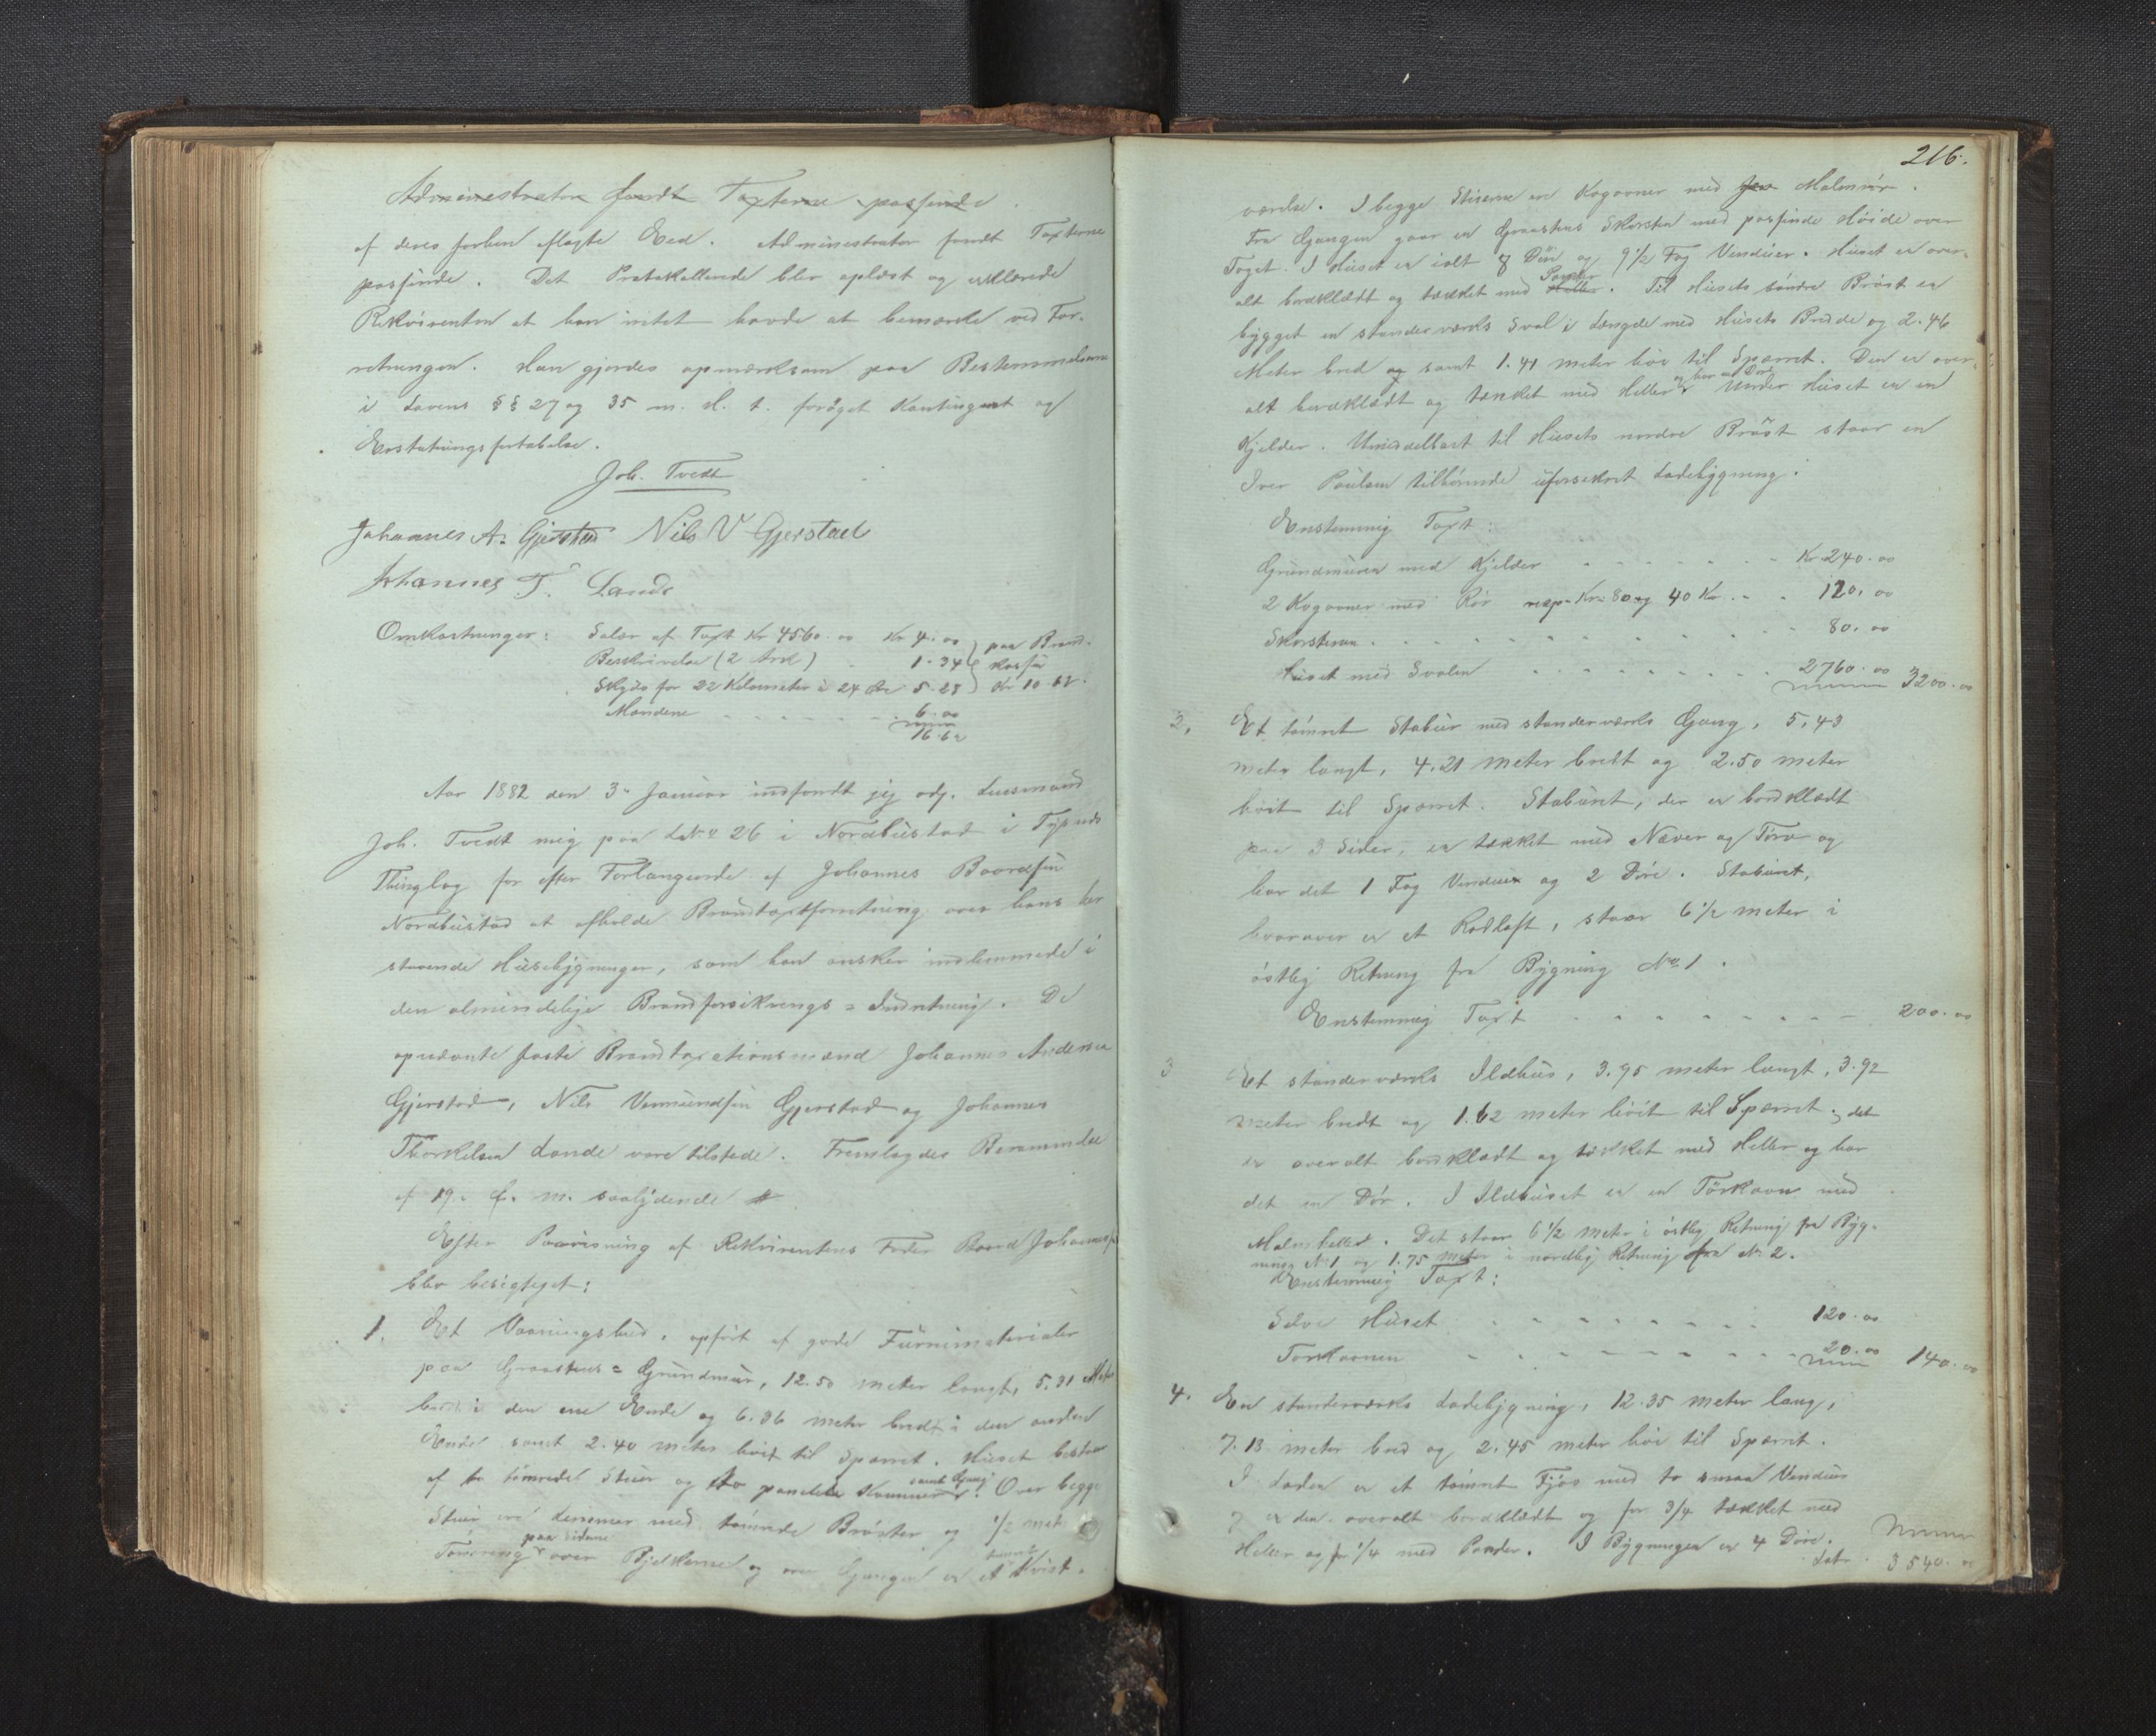 Administrator fandt Taxterne passende.
af deres forhen aflagte Eed. Administrator fandt Taxterne
passende. Det Protokollerede blev oplæst og erklærede
Rekvirenten at han intet havde at bemærke ved For-
retningen. Han gjordes opmærksom paa Bestemmelserne
i Lovens §§ 27 og 35 m. H. t. forøget Kontingent og
Erstatningsfortabelse.
Joh. Tvedt
Johannes A. Gjerstad Nils V Gjerstad
Johannes T. Lande
Omkostninger: Salær af Taxt Kr 4560.00 Kr 4.00 } paa Brand-
Beskrivelse (2 Ark) 1.34 kassen
Skyds for 22 Kilometer à 24 Øre 5.28 Kr 10.62.
Mændene 6.00
16.62
Aar 1882 den 3. Januar indfandt jeg Lensmand
Joh. Tvedt mig paa LNo 26 i Nordbustad i
Thinglag for efter Forlangende af Johannes Baardsen
Nordbustad at afholde Brandtaxtforretning over hans her
staaende Husebygninger, som han ønsker indlemmede i
den almindelige Brandforsikrings-Indretning. De
opnævnte faste Brandtaxationsmænd Johannes Andersen
Gjerstad, Nils Vermundsen Gjerstad og Johannes
Thorkelsen Lande vare tilstede. Fremlagdes Berammelse
af 19. f. m. saalydende
Efter Paavisning af Rekvirentens Fader Baard Johannesen
blev besigtiget:
1. Et Vaaningshus, opført af gode Furumaterialer
paa Graastens-Grundmur, 12.50 meter langt, 5.31 Meter
bredt i den ene Ende og 6.36 meter bredt i den anden
Ende samt 2.40 meter høit til Sparret. Huset bestaar
af to tømrede Stuer og to panelede Kammere samt Gang. Over begge
Stuer ere Lemmer med tømrede Brøster og 1/2 meter
Tømring paa Siderne over Bjelkerne og over Gangen er et tømret Kvist-
216.
værelse. I begge Stuerne ere Kogovner med Malmrør.
Fra Gangen gaar en Graastens Skorsten med passende Høide over
Taget. I Huset er ialt 8 Døre og 9 1/2 Fag Vinduer. Huset er over-
alt bordklædt og tækket med Heller Pander. Til Husets søndre Brøst er
bygget en standerværks Sval i Længde med Husets Bredde og 2.46
Meter bred og samt 1.41 meter høi til Sparret. Den er over-
alt bordklædt og tækket med Heller og har en Dør. Under Huset er en
Kjelder. Umiddelbart til Husets nordre Brøst staar en
Iver Paulsen tilhørende uforsikret Ladebygning.
Enstemmig Taxt:
Grundmuren med Kjelder Kr 240.00
2 Kogovner med Rør resp. Kr 80 og 40 Kr 120.00
Skorstenen 80.00
Huset med Svalen 2760.00 3200.00
2. Et tømret Stabur med standerværks Gang, 5,43
meter langt, 4.21 meter bredt og 2.50 meter
høit til Sparret. Staburet, der er bordklædt
paa 3 Sider, er tækket med Næver og Torv og
har det 1 Fag Vinduer og 2 Døre. Staburet,
hvorover er et Rodloft, staar 6 1/2 meter i
østlig Retning fra Bygning No 1.
Enstemmig Taxt 200.00
3 Et standerværks Ildhus, 3.95 meter langt, 3.92
meter bredt og 1.62 meter høit til Sparret; det
er overalt bordklædt og tækket med Heller og har
det en Dør. I Ildhuset er en Tørkeovn med
Malmheller. Det staar 6 1/2 meter i østlig Retning fra Byg-
ning No 1 og 1.75 meter i nordlig Retning fra No 2.
Enstemmig Taxt:
Selve Huset 120.00
Tørkeovnen 20.00 140.00
4. En standerværks Ladebygning, 12.35 meter lang,
7.13 meter bred og 2.45 meter høi til Sparret.
I Laden er et tømret Fjøs med to smaa Vinduer
er den overalt bordklædt og for 3/4 tækket med
Heller og for 1/4 med Pander. I Bygningen er 4 Døre.
Latr. 3540.00